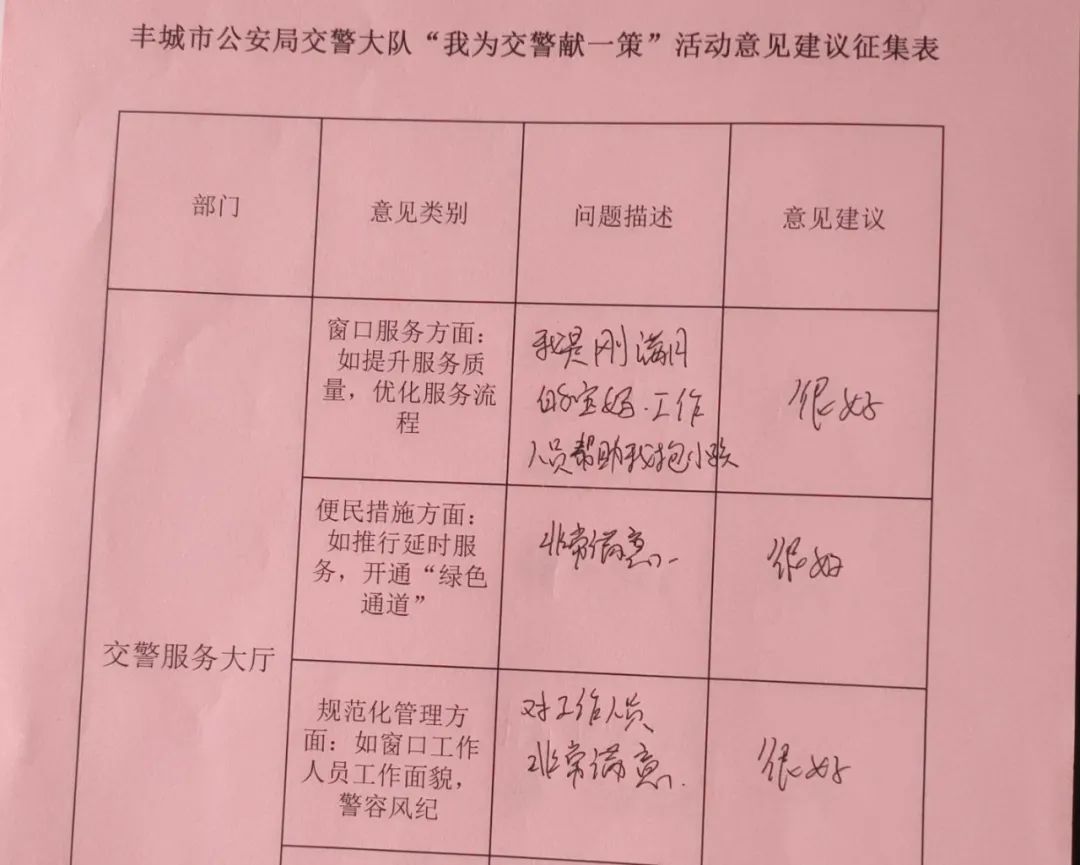 丰城市公安局交警大队“我为交警献一策”活动意见建议征集表
部门
意见类别
问题描述
意见建议
交警服务大厅
窗口服务方面：
如提升服务质
量，优化服务流
程
我是刚满月
的宝妈.工作
人员帮助我抱小孩
很好
便民措施方面：
如推行延时服
务，开通“绿色
通道”
非常满意.
很好
规范化管理方
面：如窗口工作
人员工作面貌，
警容风纪
对工作人员
非常满意.
很好